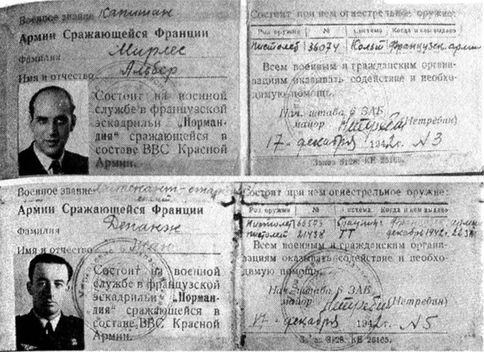 Военное звание Капитан
Армии Сражающейся Франции
Фамилия Мирлес
Имя и отчество Альбер
Состоит на военной
службе в французской
эскадрильи „Норман-
дия" сражающейся в
составе ВВС Красной
Армии.
Состоит при нем огнестрельное оружие:
Род оружия № система Когда и кем выдано
пистолет 36074 Кольт Французск. арм
Всем военным и гражданским органи-
зациям оказывать содействие и необхо-
димую помощь.
Нач. штаба 6 ЗАБ
майор (Нетребин)
17 декабря 1942 г. N3
Военное звание
Армии Сражающейся Франции
Фамилия Депанж
Имя и отчество Жан
Состоит на военной
службе в французской
эскадрильи „Норман-
дия" сражающейся в
составе ВВС Красной
Армии.
Состоит при нем огнестрельное оружие:
Род оружия № система Когда и кем выдано
пистолет
пистолет ТТ декабря 1942
Всем военным и гражданским органи-
зациям оказывать содействие и необхо-
димую помощь.
Нач. штаба 6 ЗАБ
майор (Нетребин)
17 декабря 1942 г. N5